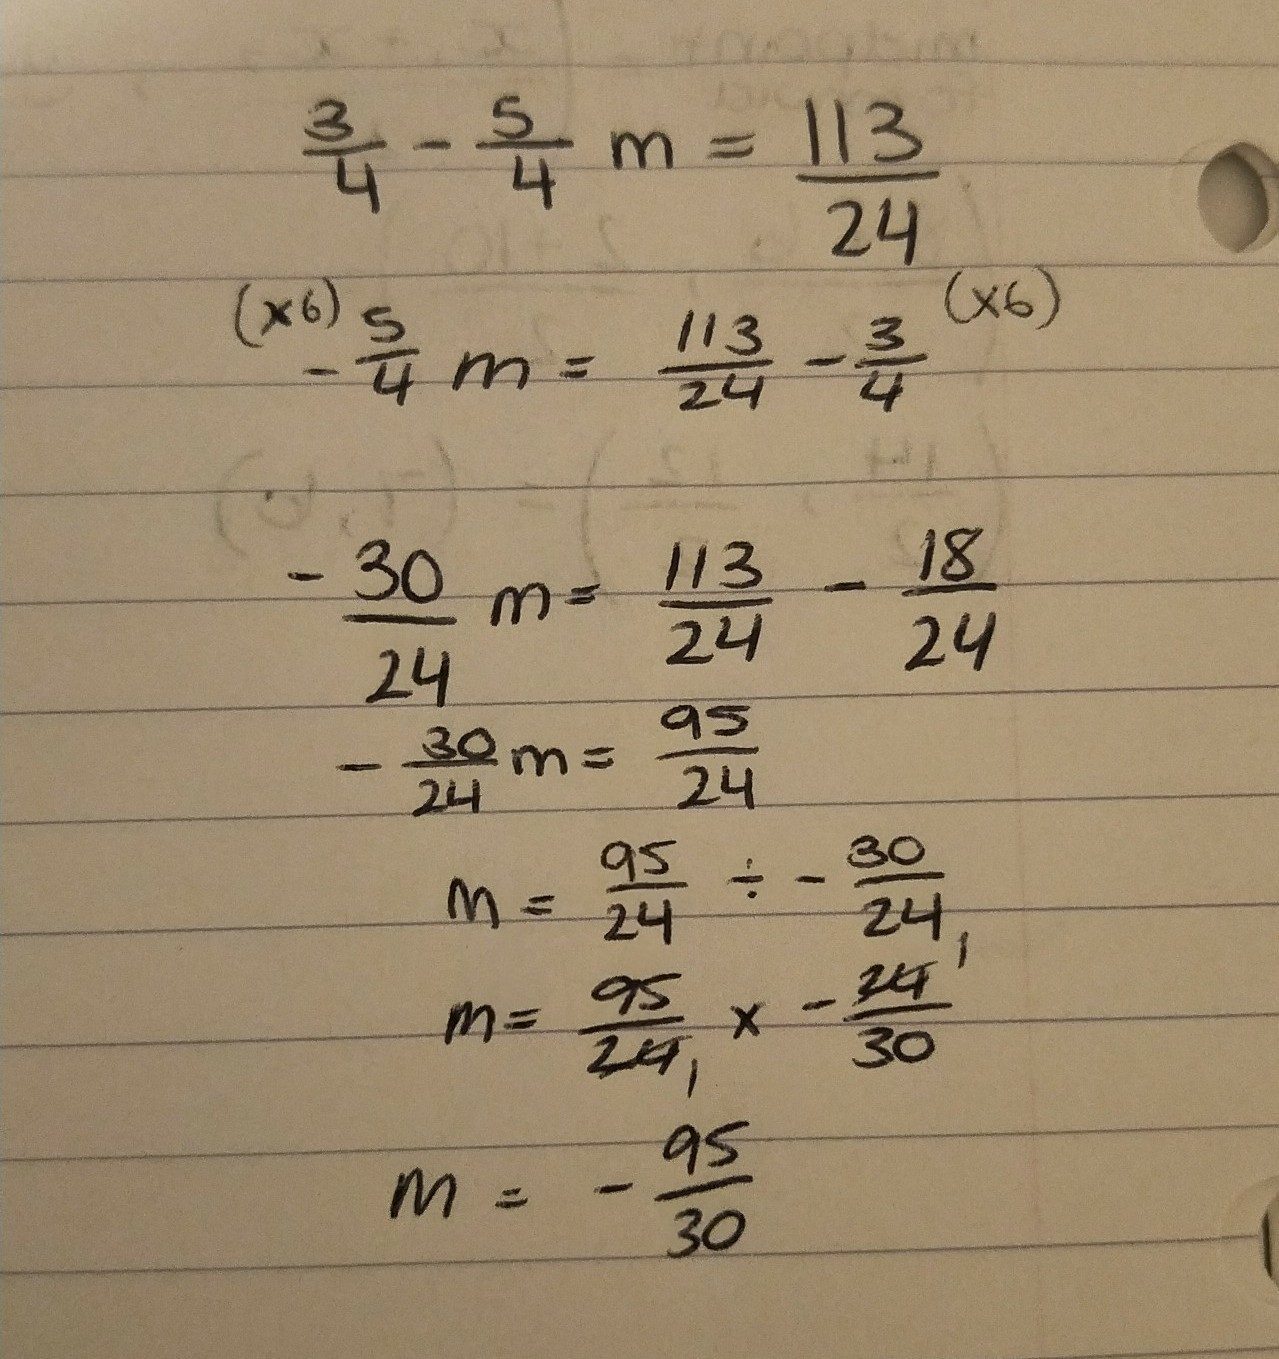 3/4 - 5/4 m = 113/24
(×6) - 5/4 m = 113/24 - 3/4 (×6)
- 30/24 m = 113/24 - 18/24
- 30/24 m = 95/24
m = 95/24 ÷ - 30/24
m = 95/24 1 × - 24 1/30
m = - 95/30